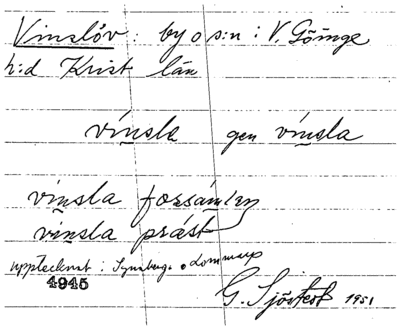 Vinslöv: by o s:n i V. Göinge
h:d Krist län
vinsla gen vinsla
vinsla forsamlin
vinsla präst
upptecknat i
4945
G. Sjöstedt 1951